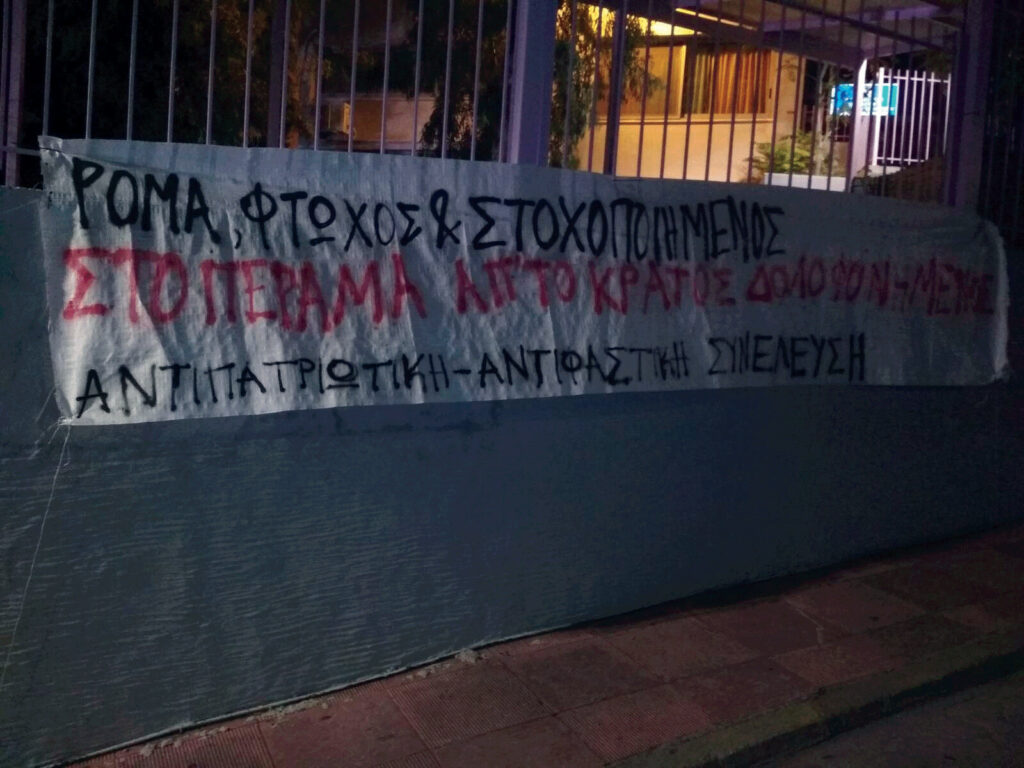 ΡΟΜΑ, ΦΤΩΧΟΣ & ΣΤΟΧΟΠΟΙΗΜΕΝΟΣ
ΣΤΟ ΠΕΡΑΜΑ ΑΠ'ΤΟ ΚΡΑΤΟΣ ΔΟΛΟΦΟΝΗΜΕΝΟΣ
ΑΝΤΙΠΑΤΡΙΩΤΙΚΗ-ΑΝΤΙΦΑΣΤΙΚΗ ΣΥΝΕΛΕΥΣΗ